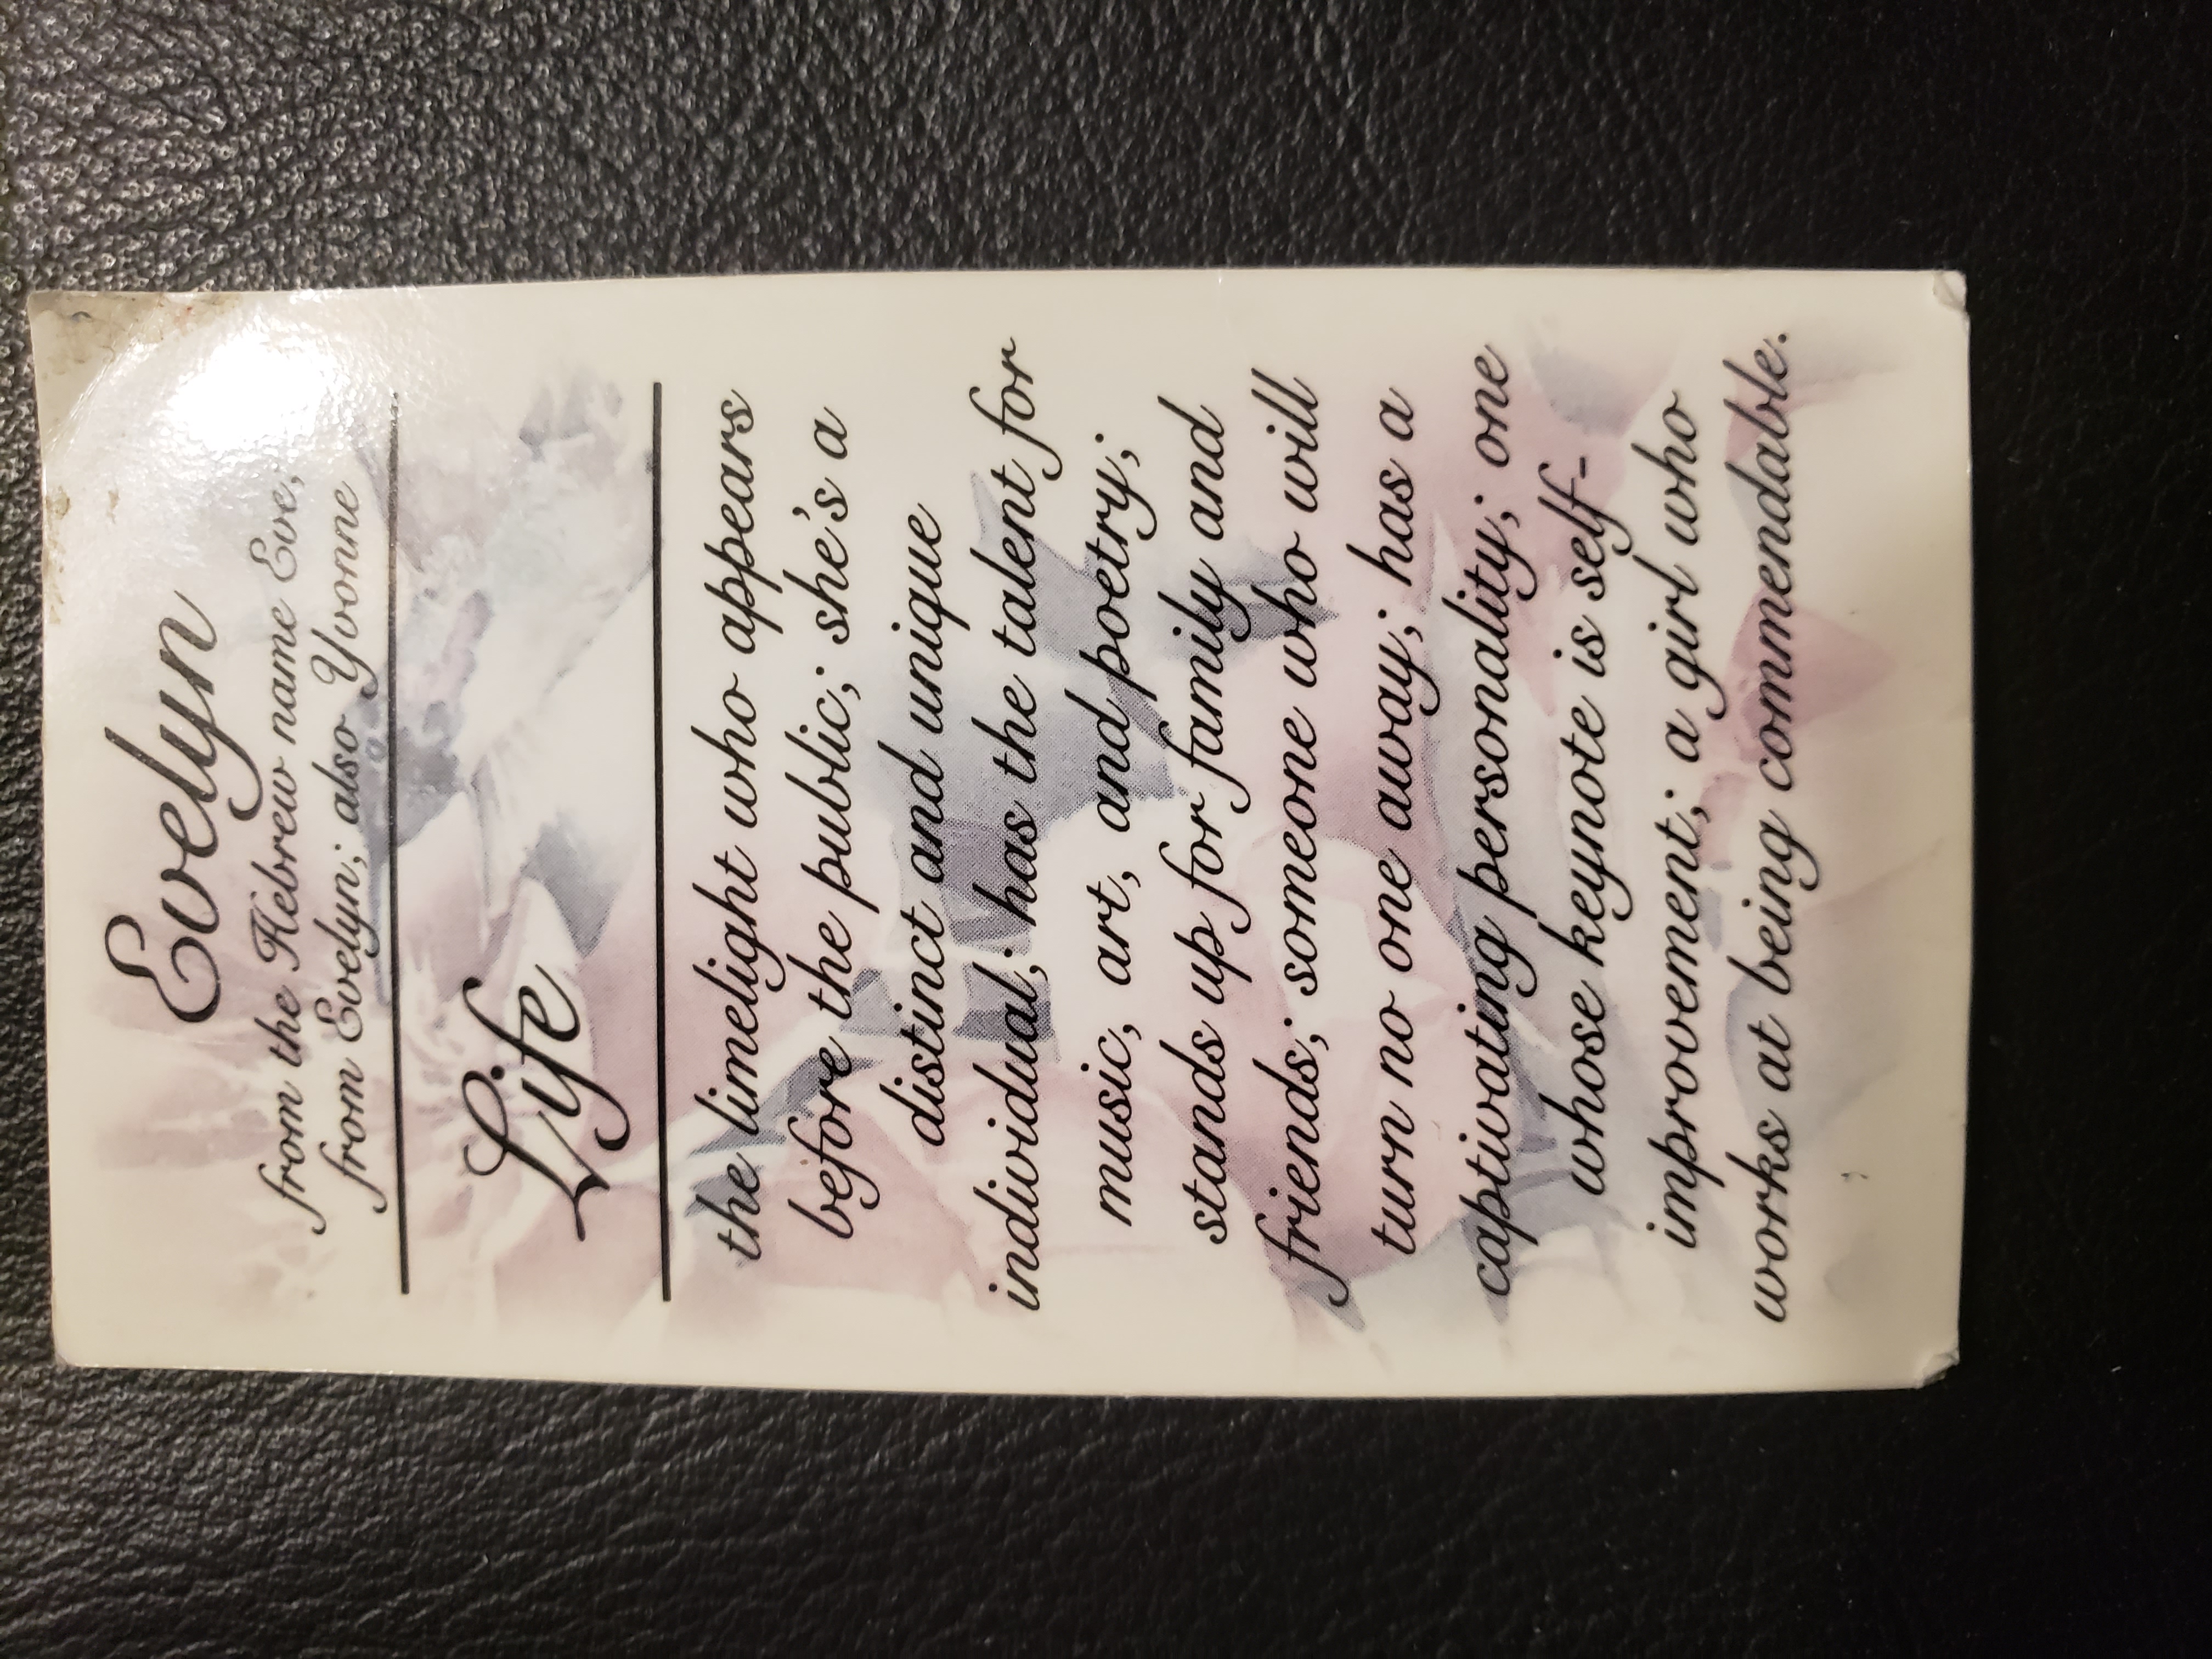 Evelyn
from the Hebrew name Eve,
from Evelyn; also Yvonne
Life
the limelight who appears
before the public; she's a
distinct and unique
individual; has the talent for
music, art, and poetry;
stands up for family and
friends; someone who will
turn no one away; has a
captivating personality; one
whose keynote is self-
improvement; a girl who
works at being commendable.